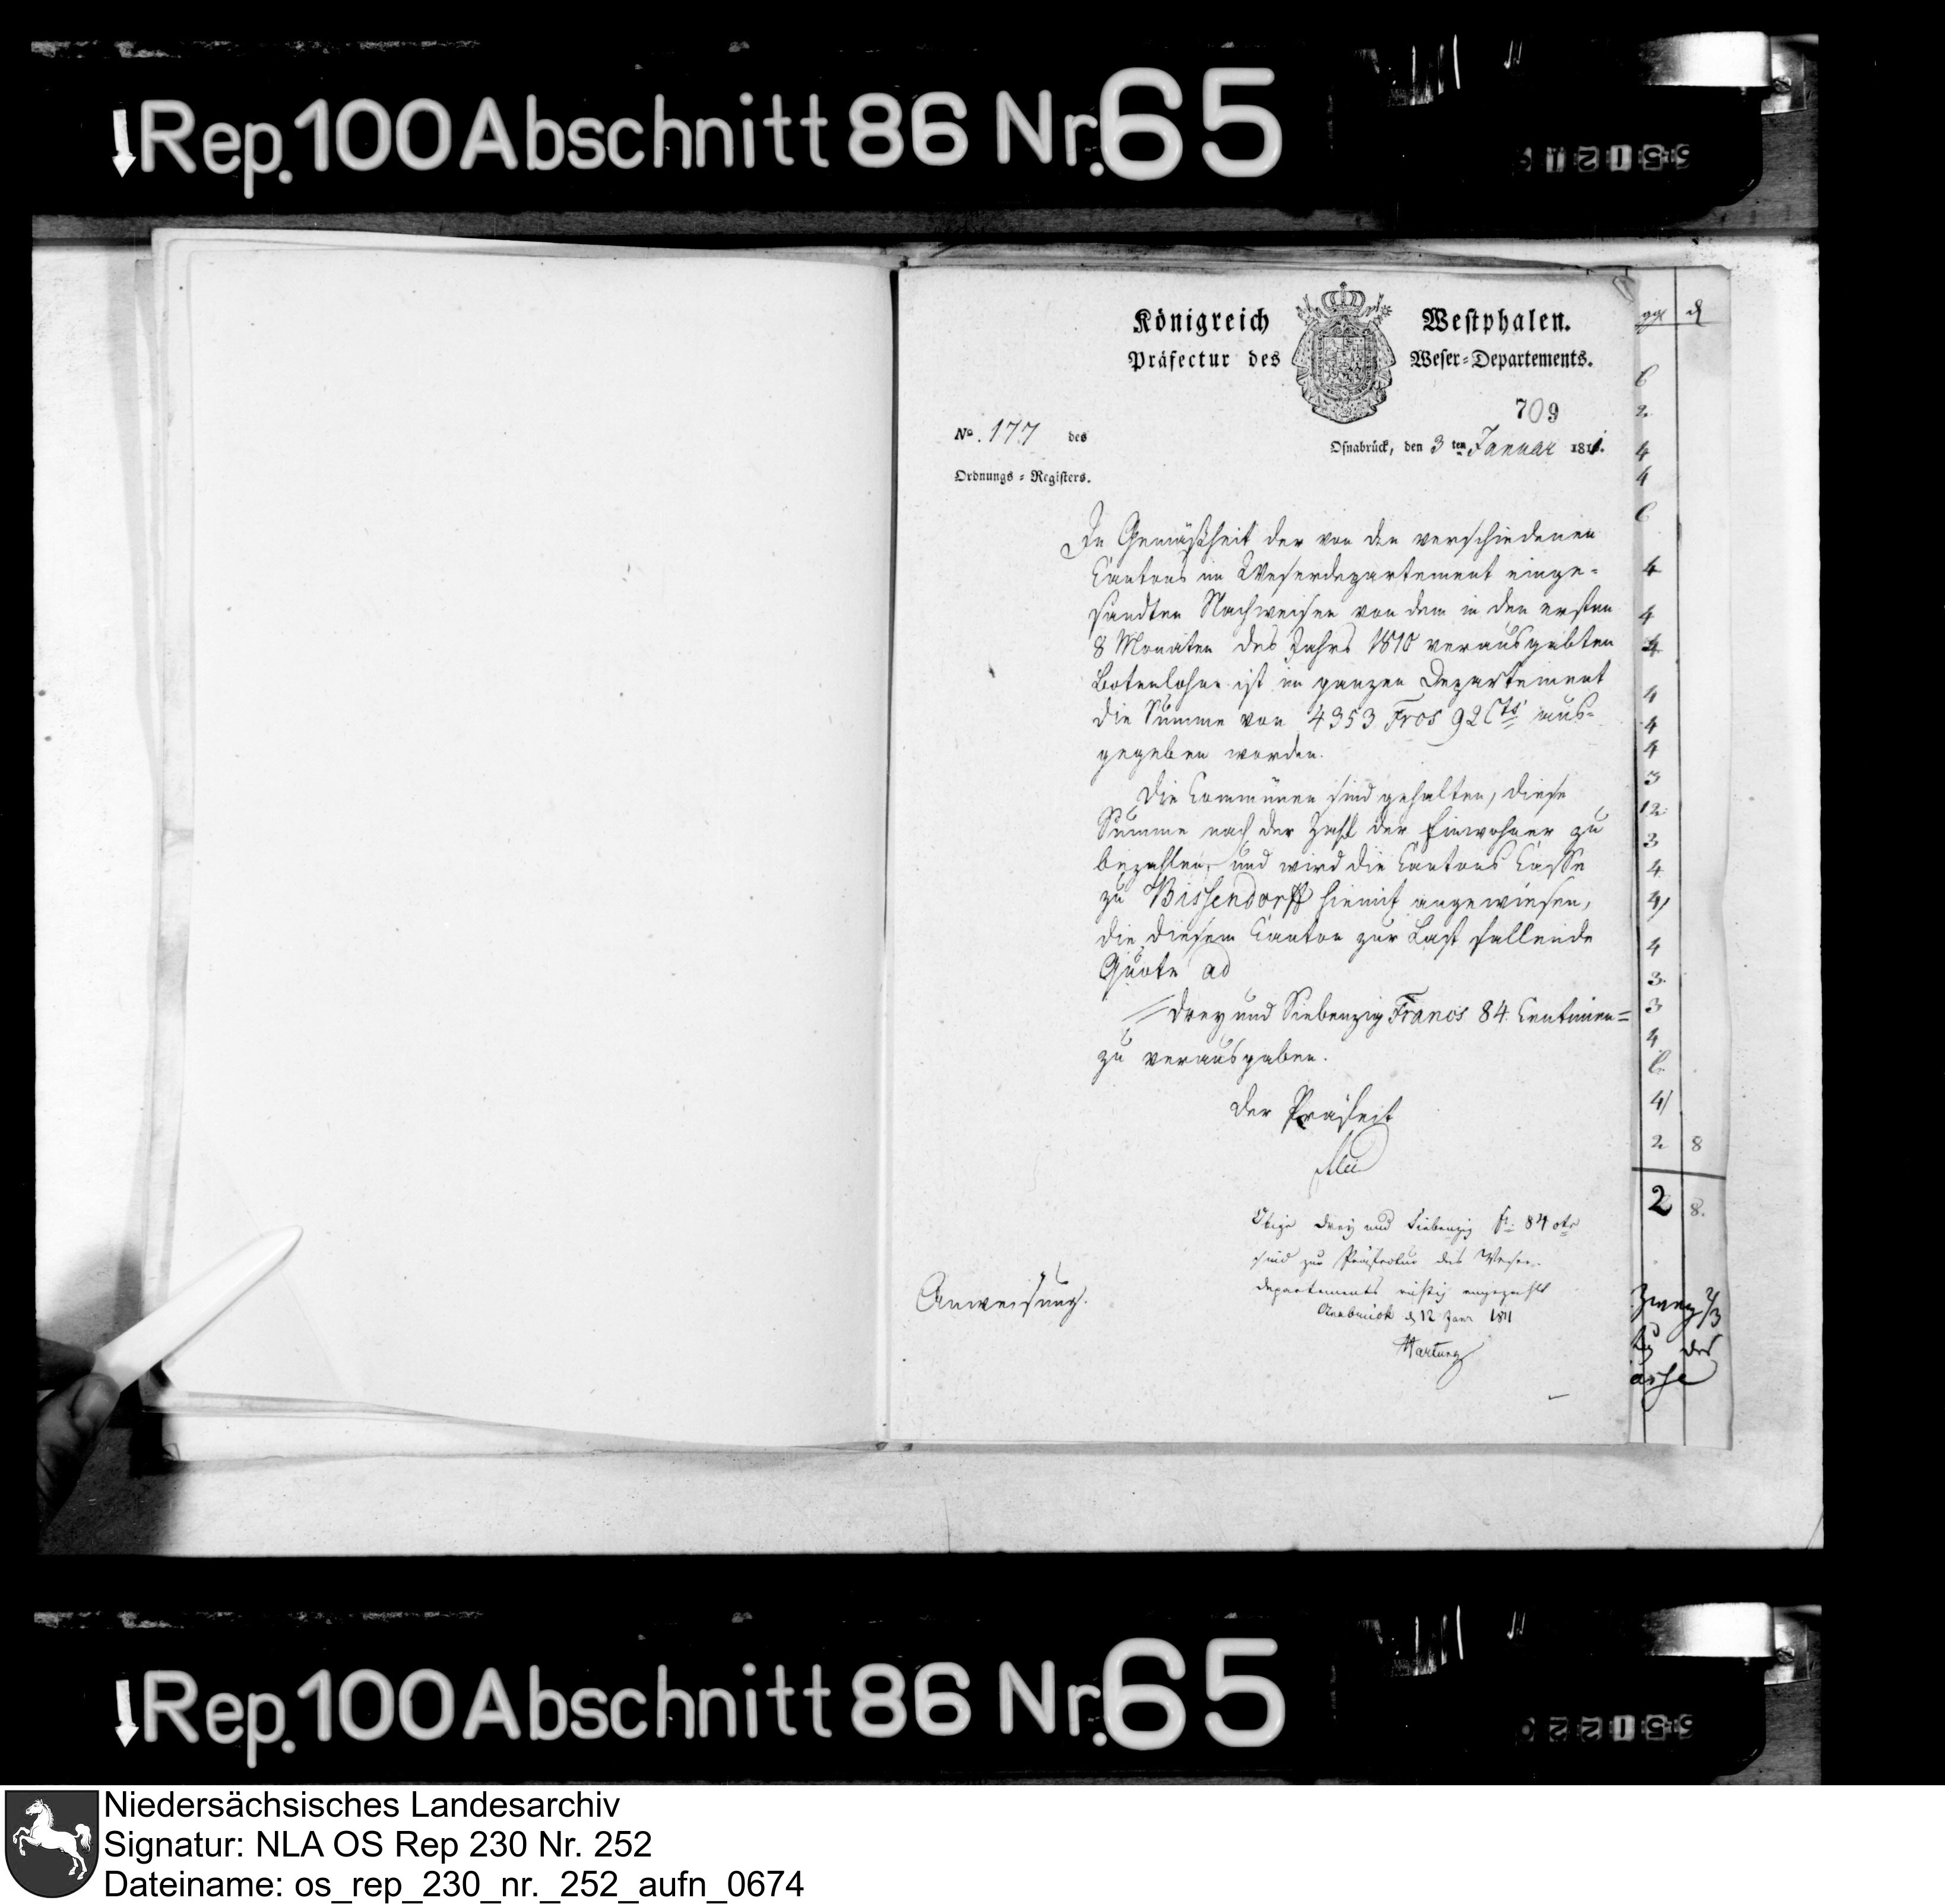 Rep. 100 Abschnitt 86 Nr. 65
Königreich Westphalen.
Präfectur des Weser-Departements.
709
No. 177 des
Osnabrück, den 3ten Januar 1811.
Ordnungs-Registers.
In Gemäßheit der von den verschiedenen
Cantons im Weserdepartement einge-
sandten Nachweisen von dem in den ersten
8 Monaten des Jahrs 1810 verausgabten
Botenlohne ist im ganzen Departement
die Summe von 4353 Frcs 92 Cts aus-
gegeben worden.
Die Communen sind gehalten, diese
Summe nach der Zahl der Einwohner zu
bezahlen, und wird die Cantons Casse
zu Bissendorff hiemit angewiesen,
die diesem Canton zur Last fallende
Quote ad
drey und Siebenzig Francs 84 Centimen=
zu verausgaben.
der Präfect
Obige drey und Siebenzig fr: 84 cts
sind zur Präfectur des Weser-
departements richtig eingezahlt
Osnabrück d 12 Janr 1811
Hartung
Anweisung.
6
2
4
4
6
4
4
4
4
4
4
3
12
3
4
4
4
3
3
4
6
4
2 8
2 8.
Rep. 100 Abschnitt 86 Nr. 65
Niedersächsisches Landesarchiv
Signatur: NLA OS Rep 230 Nr. 252
Dateiname: os_rep_230_nr._252_aufn_0674